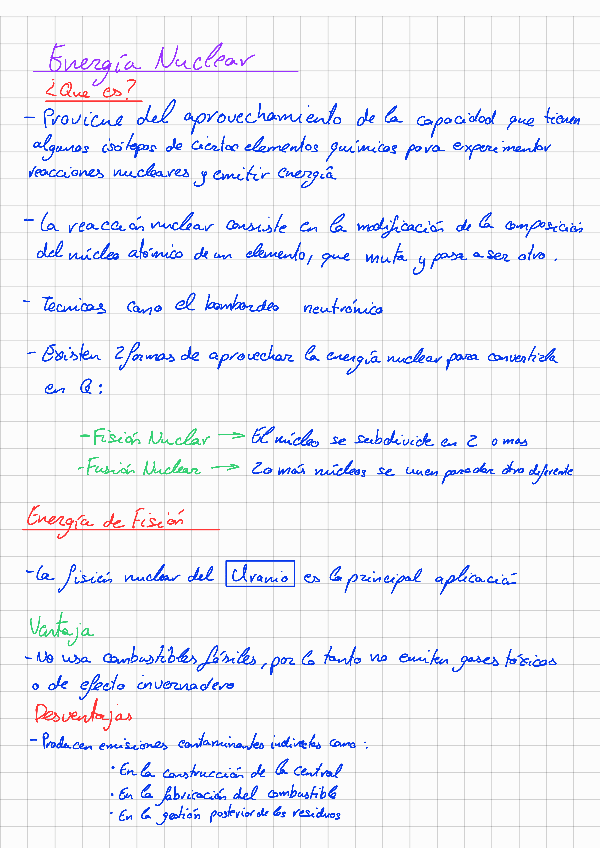 Energía Nuclear
¿Que es?
- Proviene del aprovechamiento de la capacidad que tienen
algunos isótopos de ciertos elementos químicos para experimentar
reacciones nucleares y emitir energía
- La reacción nuclear consiste en la modificación de la composición
del núcleo atómico de un elemento, que muta y pasa a ser otro.
- Tecnicas como el bombardeo neutrónico
- Existen 2 formas de aprovechar la energía nuclear para convertirla
en Q:
- Fisión Nuclar → El núcleo se subdivide en 2 o mas
- Fusión Nuclear → 2 o más núcleos se unen para dar otro diferente
Energía de Fisión
- La fisión nuclear del Uranio es la principal aplicación
Ventaja
- No usa combustibles fósiles, por lo tanto no emiten gases tóxicos
o de efecto invernadero
Desventajas
- Producen emisiones contaminantes indirectas como:
· En la construcción de la central
· En la fabricación del combustible
· En la gestión posterior de los residuos